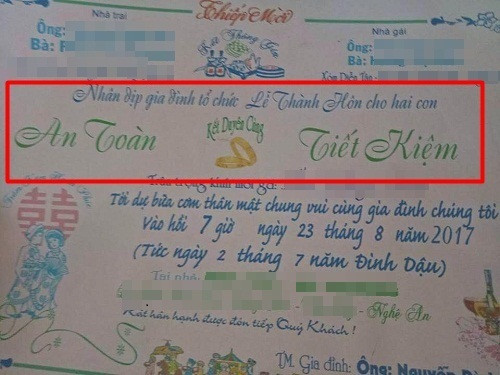 Thiếp Mời
Nhà trai
Nhà gái
Ông:
Bà:
Ông:
Bà:
Nhân dịp gia đình tổ chức Lễ Thành Hôn cho hai con
An Toàn
Kết Duyên Cùng
Tiết Kiệm
Trân trọng kính mời:
Tới dự bữa cơm thân mật chung vui cùng gia đình chúng tôi
Vào hồi 7 giờ ngày 23 tháng 8 năm 2017
(Tức ngày 2 tháng 7 năm Đinh Dậu)
Tại nhà:
- Nghệ An
Rất hân hạnh được đón tiếp Quý Khách!
TM. Gia đình: Ông: Nguyễn